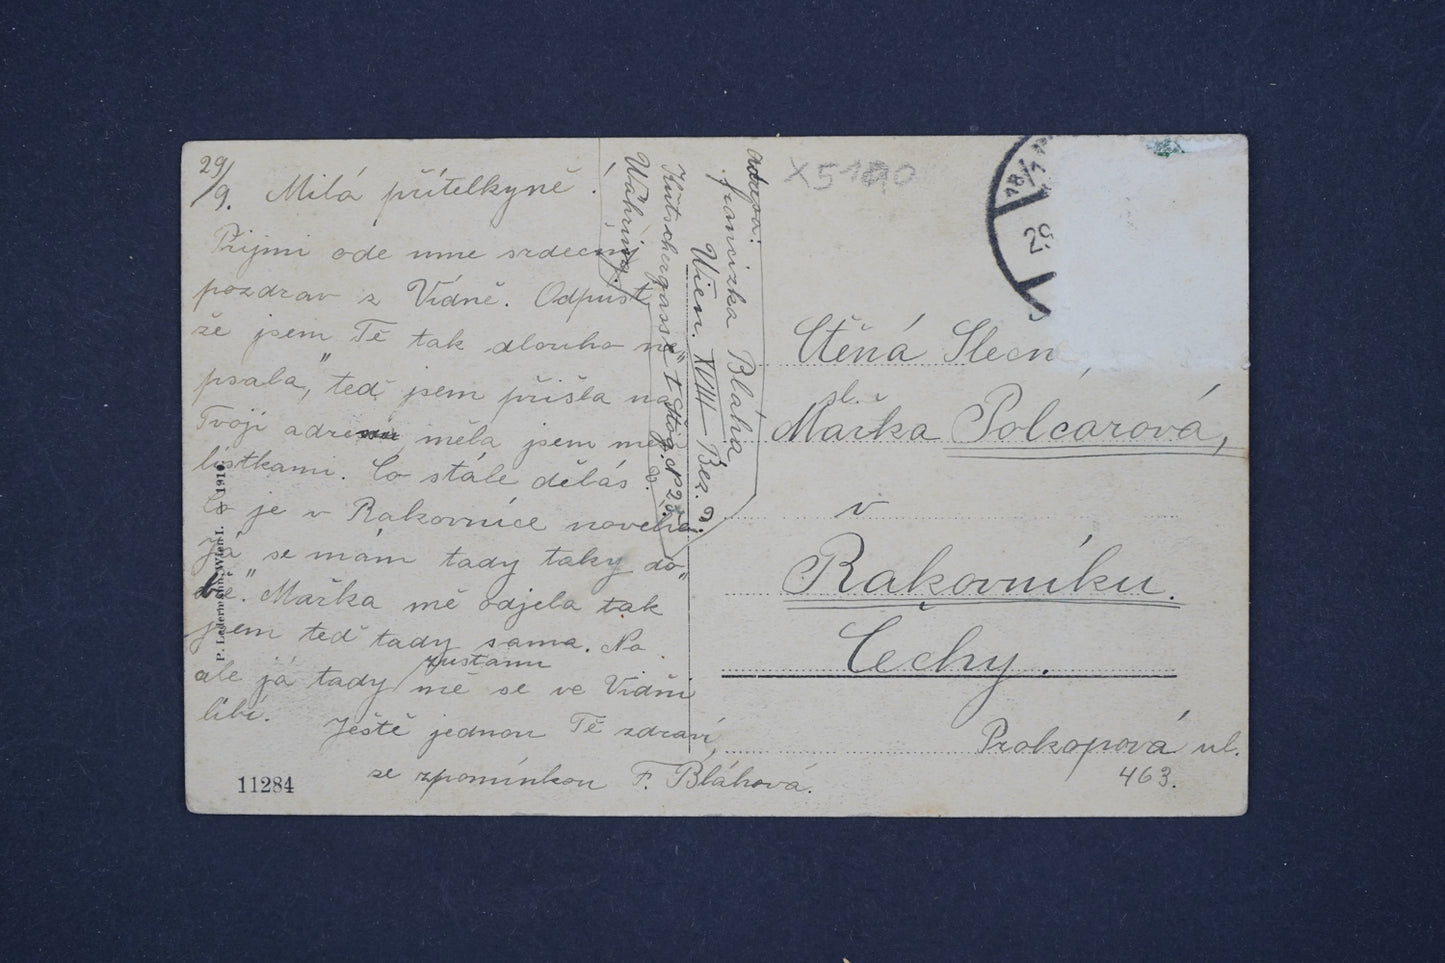 29/9. Milá přítelkyně!
Přijmi ode mne srdečný
pozdrav z Vídně. Odpusť,
že jsem Tě tak dlouho ne„
psala, teď jsem přišla na
Tvoji adre měla jsem
lístkami. Co stále děláš.
Co je v Rakovníce nového
Já se mám tady taky do„
bě." Mařka mě odjela tak
jsem teď tady sama. No
ale já tady zůstanu mě se ve Vídni
líbí.
Ještě jednou Tě zdraví,
se zpomínkou F. Bláhová.
11284
P. Ledermann, Wien I. 1916
adresa:
Francizka Bláha
Wien. XVIII Bez.
Kutschergasse
Währing.
X5190
18/1
29
Ctěná Slecn
sl.
Mařka Polcarová,
v
Rakovníku.
Čechy.
Prokopová ul.
463.